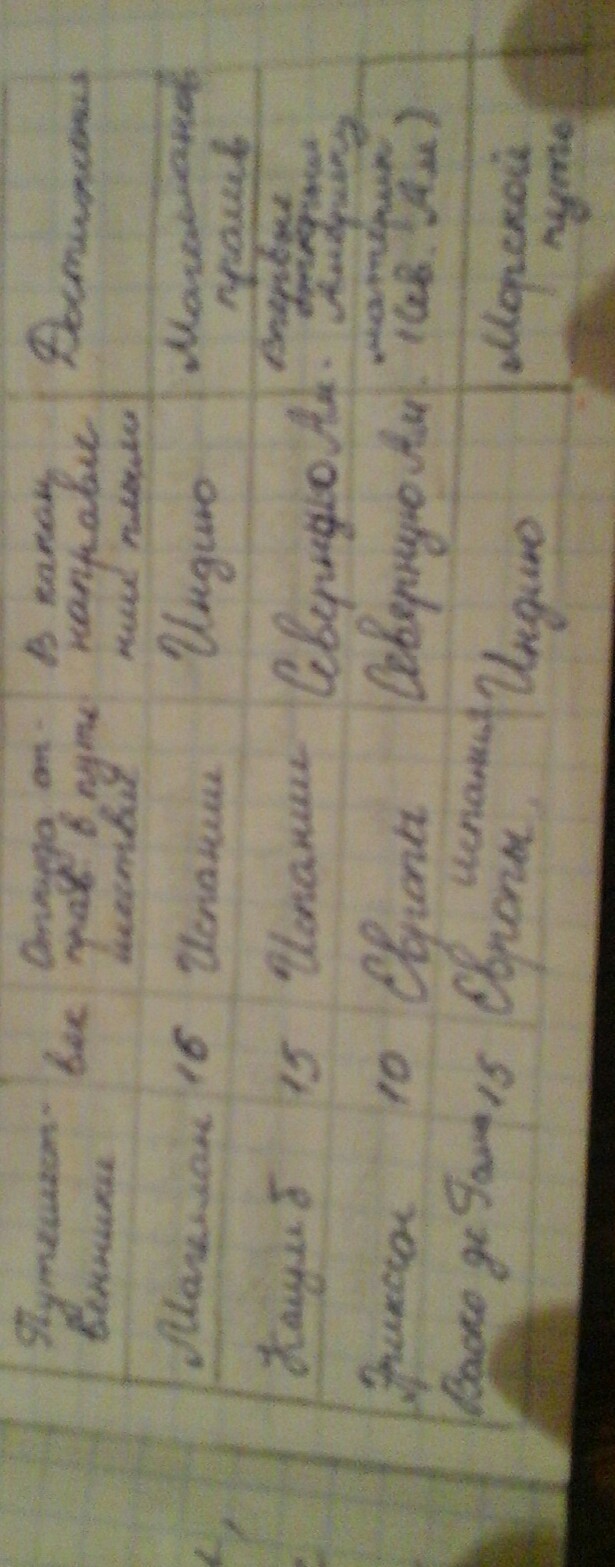 Путешест-
венники
век
Откуда от-
прав. в путе
шествие
В каком
направле
нии плыли
Достижения
Магеллан
16
Испании
Индию
Магелланов
пролив
Колумб
15
Испании
Северную Ам.
Впервые
открыл
Америку
Эриксон
10
Европы
Северную Ам.
материк
(Сев. Ам)
Васко де Гама
15
испания
Европы,
Индию
Морской
путь